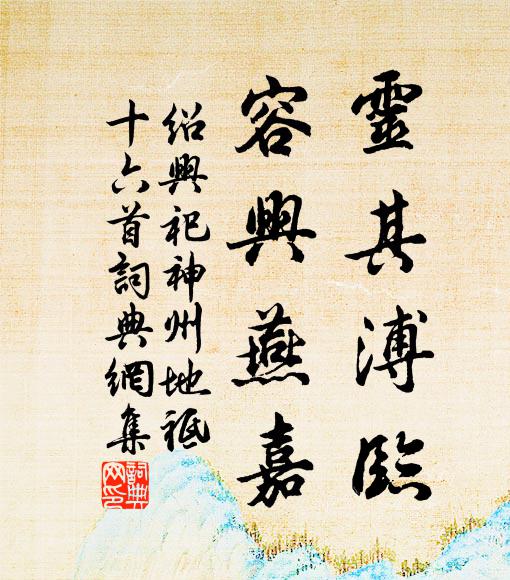 靈其溥臨
容興燕嘉
紹興祀神州地祗
十六首詞典網集
詞典
网印